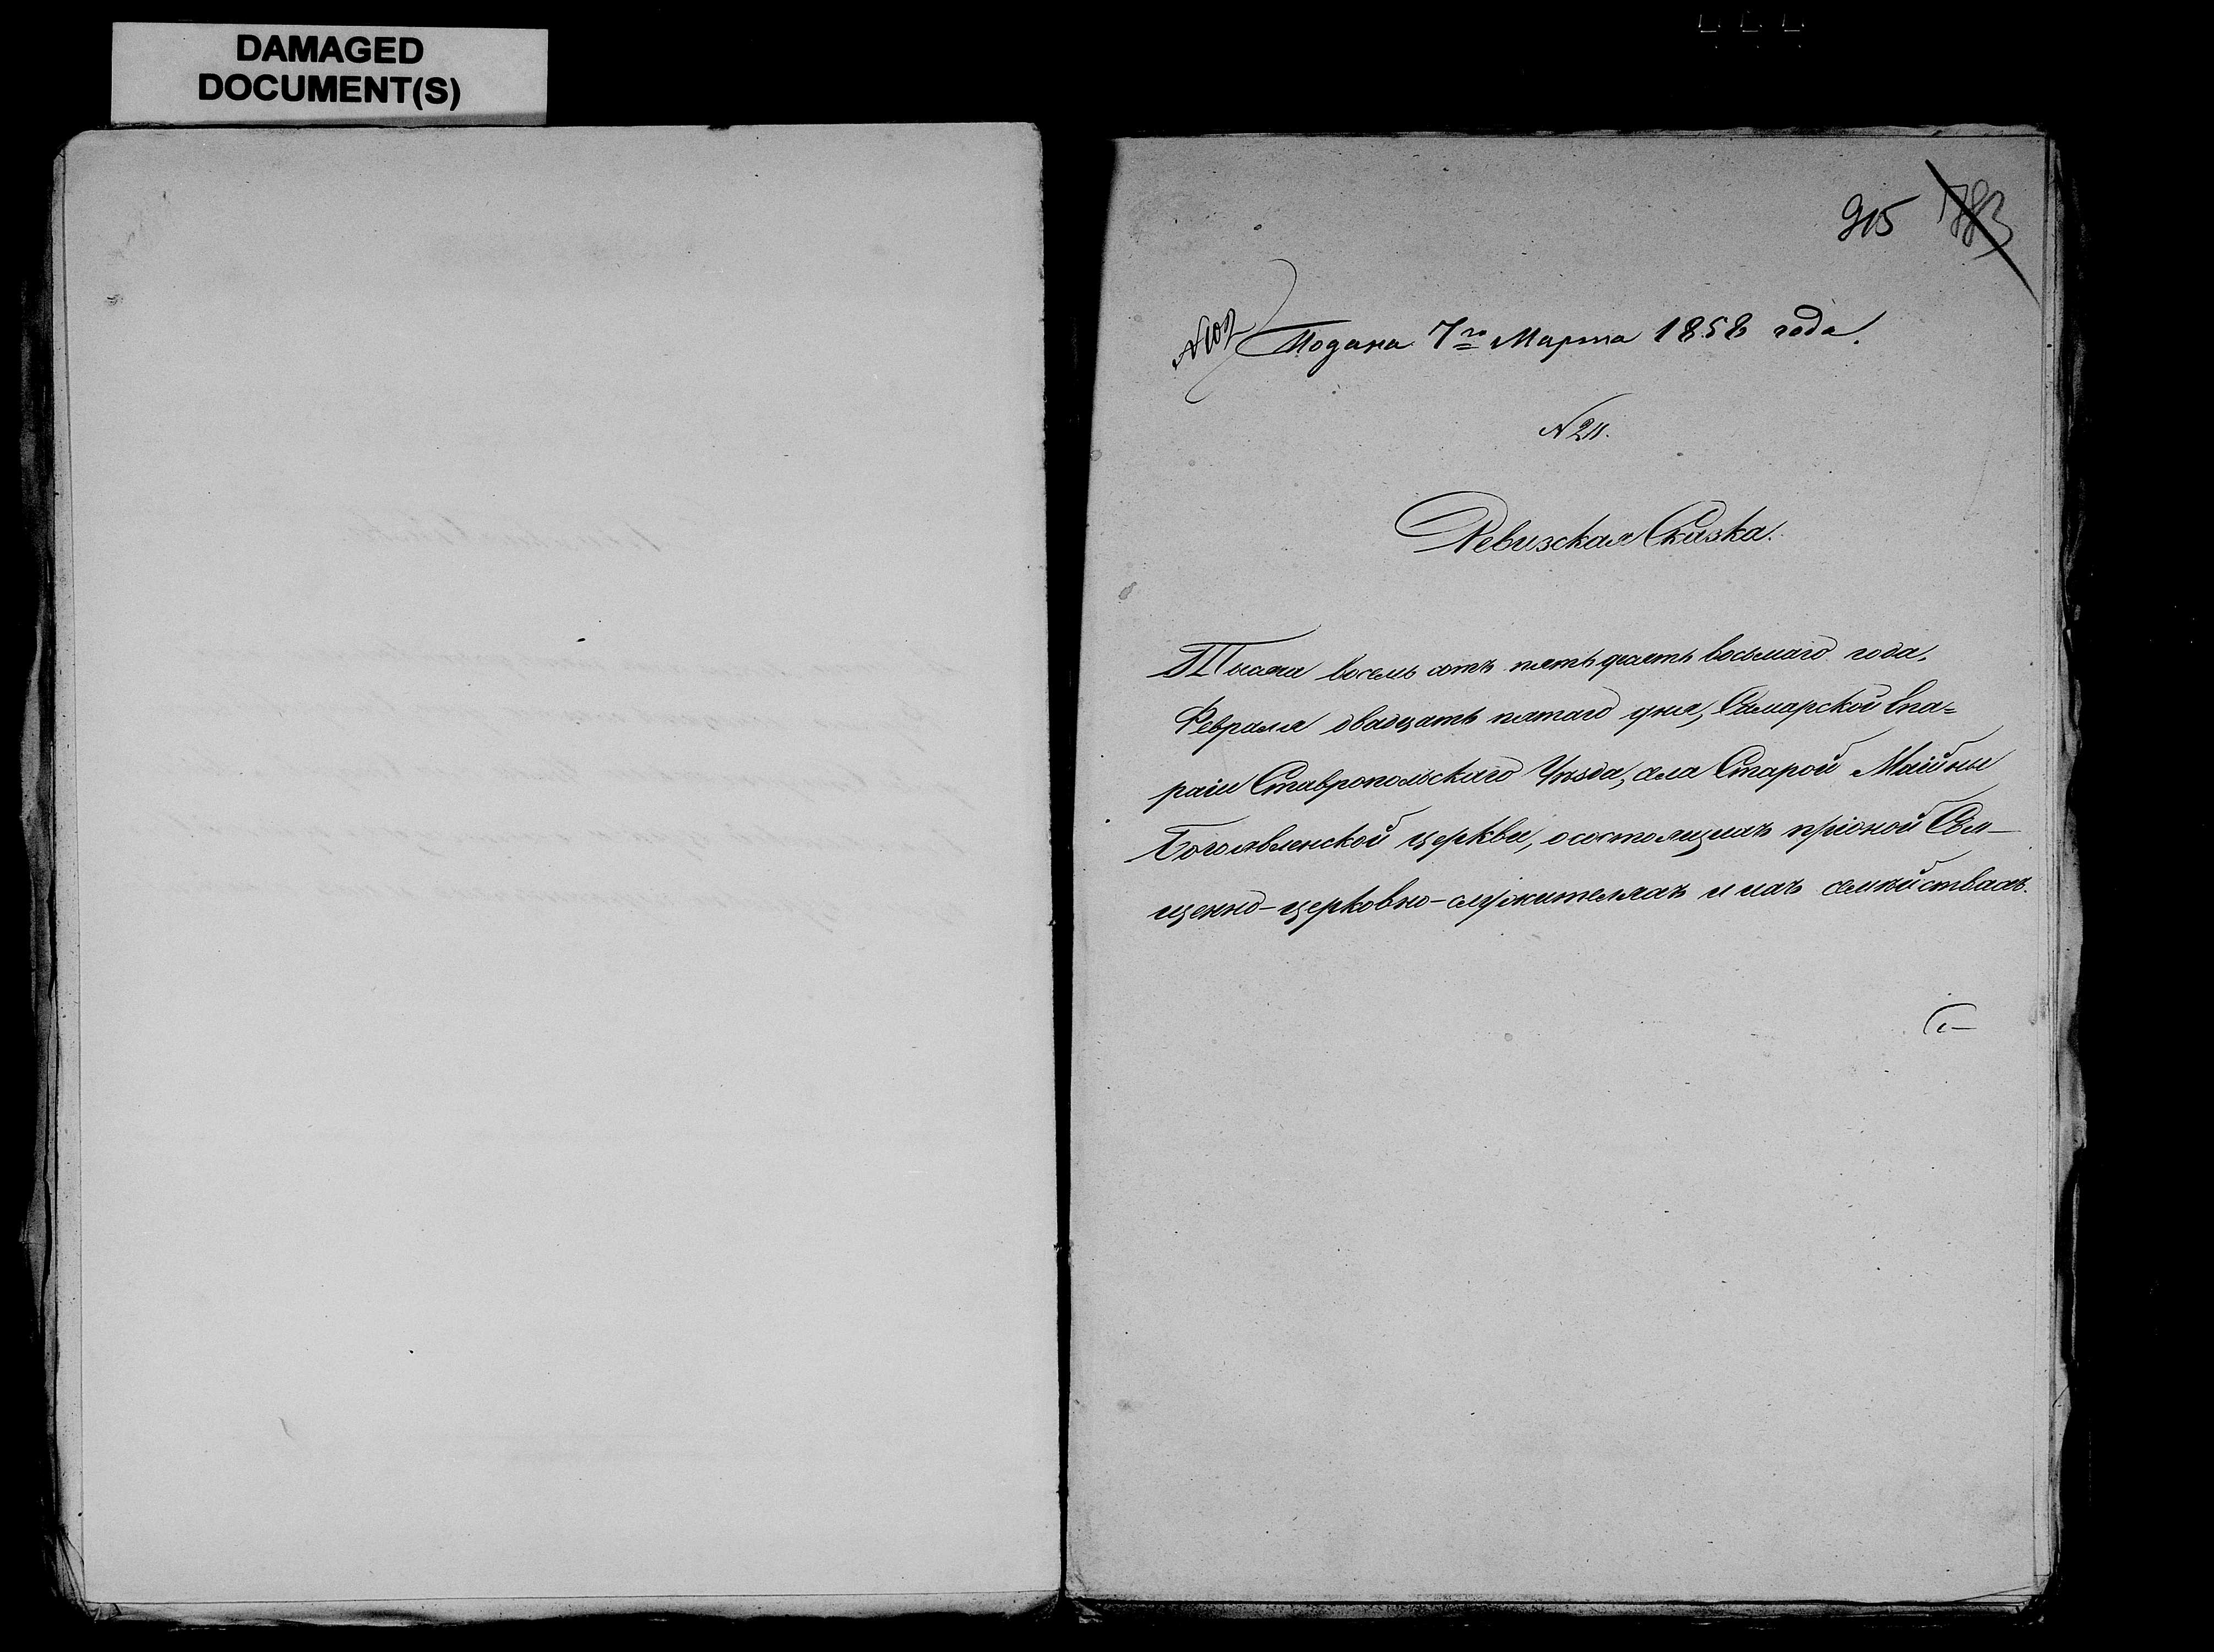 DAMAGED
DOCUMENT(S)
915 783
Подана 7го Марта 1858 года.
№ 211.
Ревизская Сказка.
Тысяча восемь сотъ пятьдесятъ восьмаго года,
Февраля двадцать пятаго дня, Самарской Епа=
рхіи Ставропольскаго Уѣзда, села Старой Майны
Богоявленской церкви, о состоящихъ при оной Свя-
щенно-церковно-служителяхъ и ихъ семействахъ.